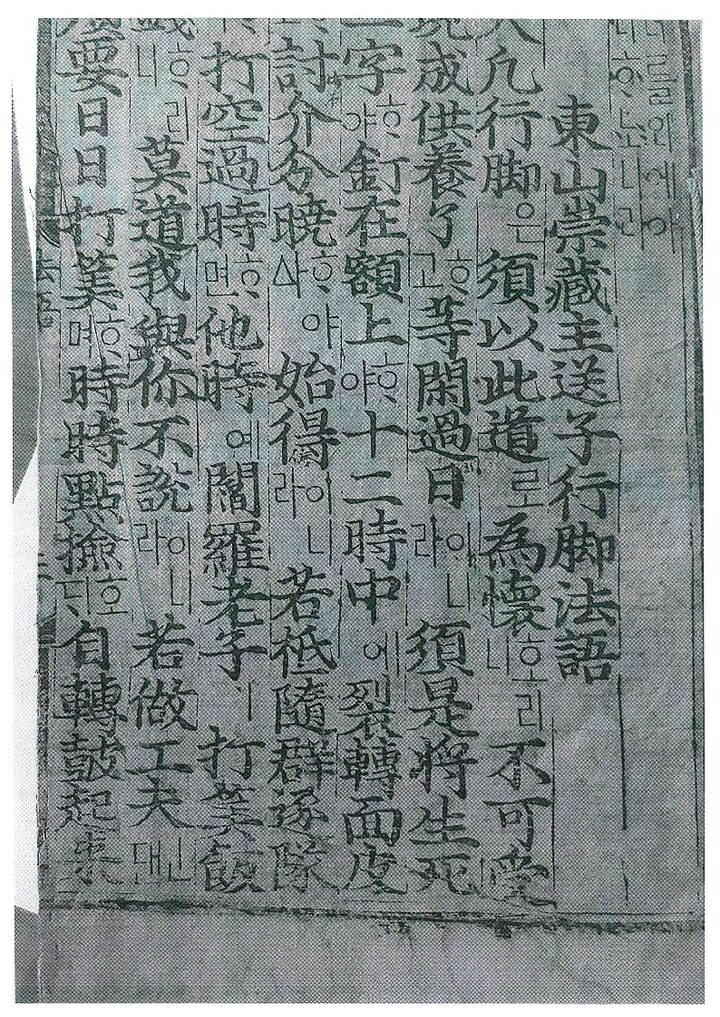 ᄒᆞ노니라
東山崇藏主送子行脚法語
凡行脚은須以此道로爲懷ᄒᆞ리니不可受
現成供養了ᄒᆞ고等閑過日이니라須是將生死
二字ᄒᆞ야釘在額上ᄒᆞ야十二時中에裂轉面皮
討介分曉ᄒᆞ야ᅀᅡ始得이니라若祗隨群逐隊
打空過時ᄒᆞ면他時예閻羅老子ㅣ打筭飯
錢ᄒᆞ리니莫道我與你不說이니라若做工夫ᅟᅵᆫ댄
須要日日打筭ᄒᆞ며時時點撿호ᄃᆡ自轉鼓起來